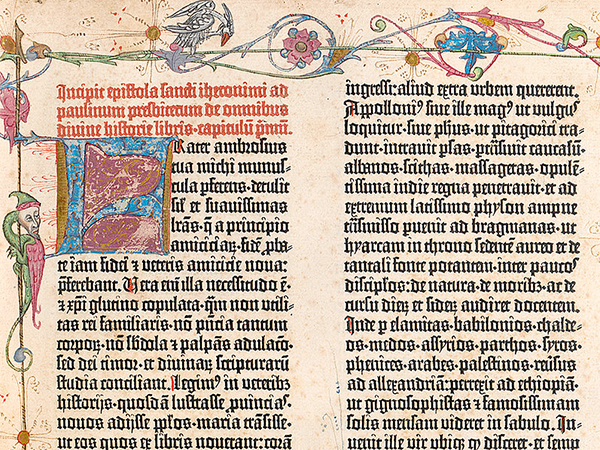 Incipit epistola sancti iheronimi ad
paulinum presbiterum de omnibus
divine historie libris·capitulū pmū.
Frater ambrosius
tua michi munus-
cula pferens·detulit
sil' et suauissimas
lrās·q̄ a principio
amiciciaꝝ·fidē pba-
te iam fidei ⁊ veteris amicicie noua:
pferebant. Vera enī illa necessitudo ē·
⁊ xpī glutino copulata·qm̄ non vtili-
tas rei familiaris·nō pn̄cia tantum
corpoꝝ·nō sb̄dola ⁊ palpās adulacō·
sed dei timor·et diuinaꝝ scripturarū
studia conciliant. Legimꝰ in veteribꝫ
historijs·quosdā lustrasse ꝓuincias·
nouos adijsse pplos·maria trāsisse·
ut eos quos ex libris nouerant: corā
ingressi: aliud extra urbem quererent.
Appolloniꝰ siue ille magꝰ ut vulgus
loquitur·siue phus·ut pitagorici tra-
dunt·intrauit psas·ptrāsiuit caucasū·
albanos·scithas·massagetas·opulē-
tissima indie regna penetrauit·et ad
extremum latissimo physon ampne
trāsmisso puenit ad bragmanas·ut
hyarcam in throno sedentē aureo et de
tantali fonte potantem·inter paucos
discipłos·de natura·de moribꝫ·ac de
cursu dieꝝ ⁊ sideꝝ audiret docentem.
Inde p elamitas·babilonios·chalde-
os·medos·assyrios·parthos·syros·
phenices·arabes·palestinos·reūsus
ad allexandriā: perrexit ad ethiopiā·
ut gignosophistas ⁊ famosissimam
solis mensam videret in sabulo. In-
uenit ille vir vbiqꝫ qd̄ disceret·et semp